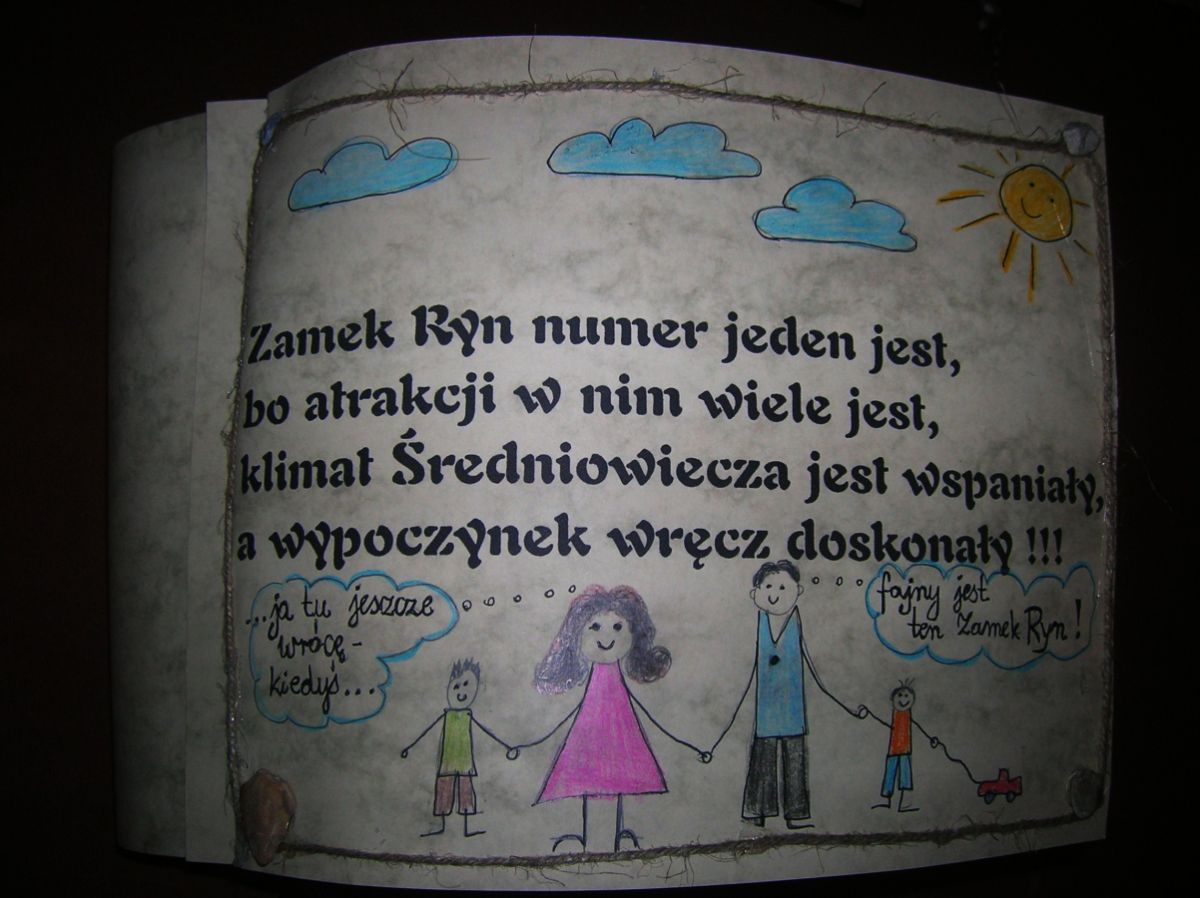 Zamek Ryn numer jeden jest,
bo atrakcji w nim wiele jest,
klimat Średniowiecza jest wspaniały,
a wypoczynek wręcz doskonały !!!
...ja tu jeszcze
wrócę -
kiedyś...
fajny jest
ten Zamek Ryn!